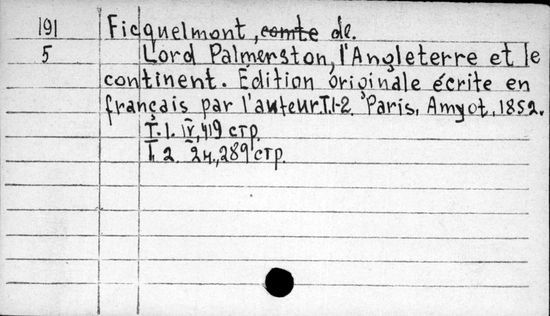 191 Ficquelmont, comte de.
5 Lord Palmerston, l'Angleterre et le
continent. Édition originale écrite en
français par l'auteur. T.1-2. Paris, Amyot, 1852.
T. 1. IV, 419 стр.
T. 2. 2н., 289 стр.